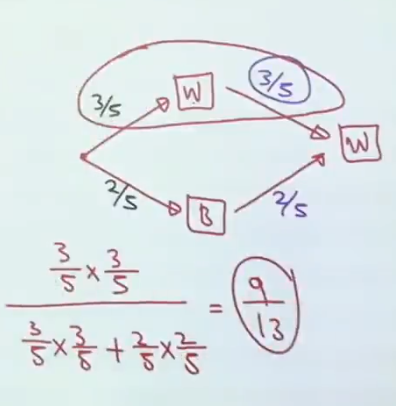 W
3/5
3/5
W
2/5
B
2/5
3/5 × 3/5
3/5 × 3/5 + 2/5 × 2/5 = 9/13